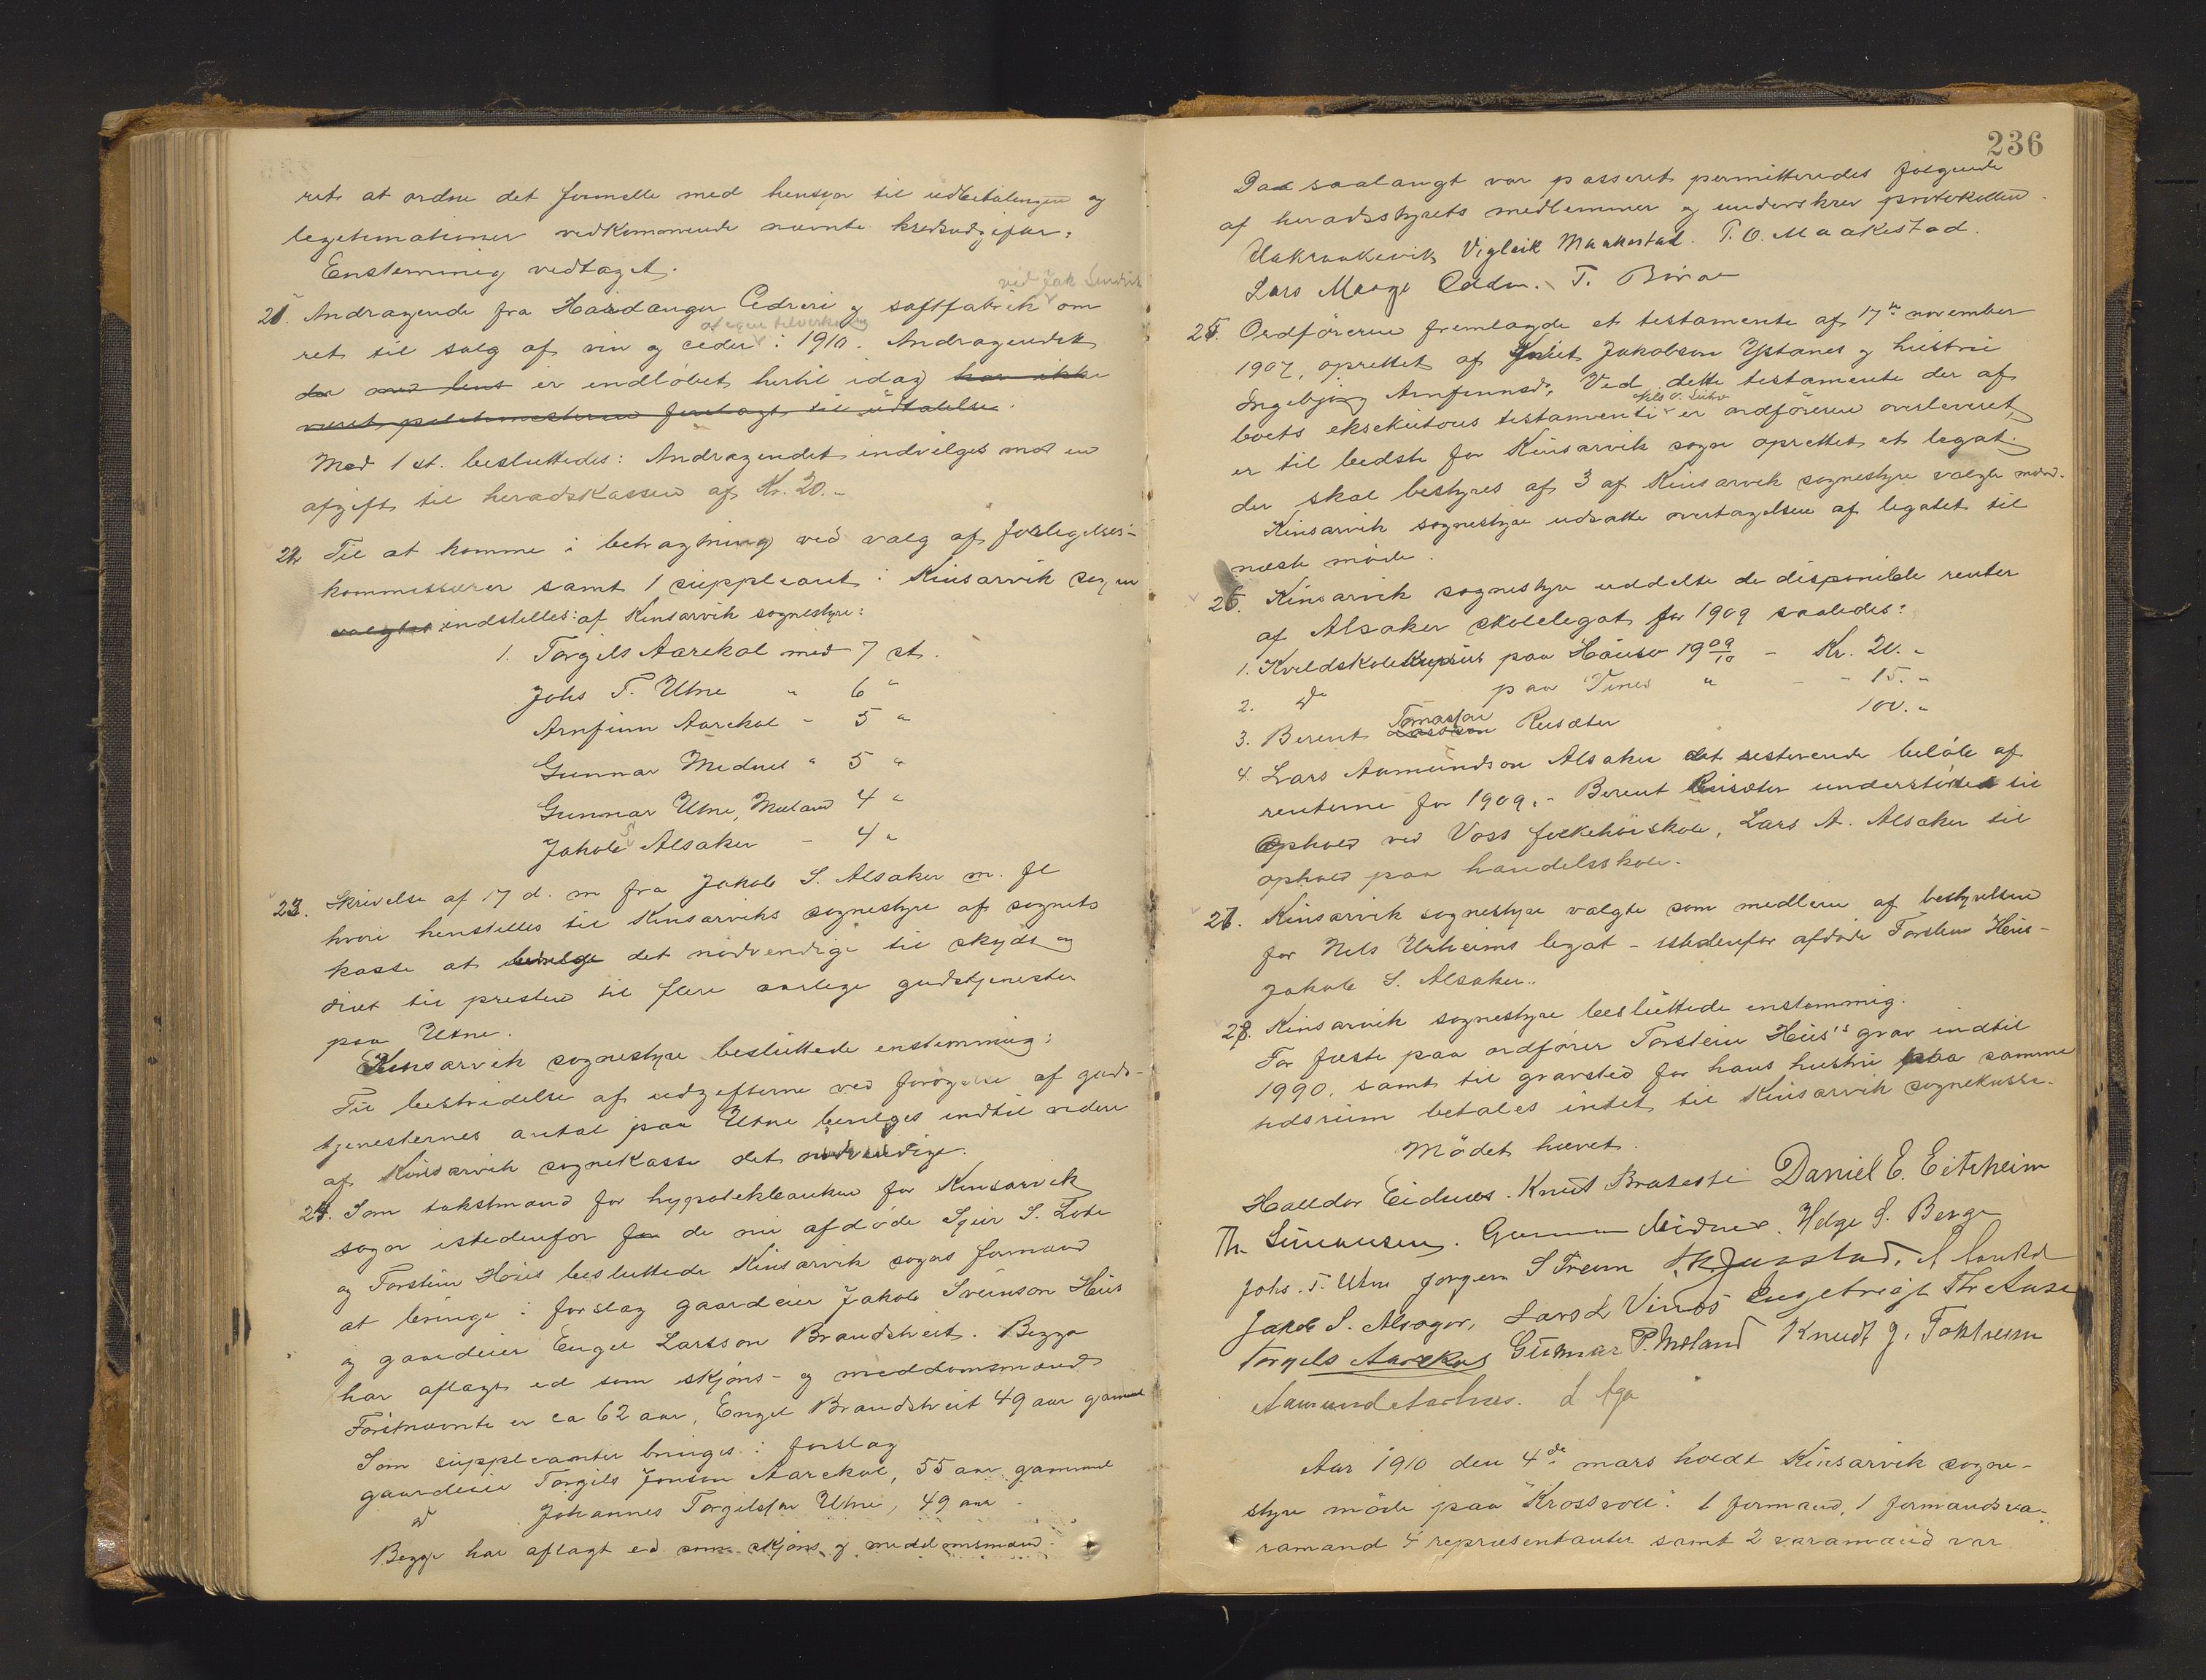 ret at ordne det formelle med hensyn til udbetalingen og
legitimationer vedkommende nævnte kredsudgifter.
Enstemmig vedtaget.
ved Jak
21. Andragende fra Hardanger Cedreri og saftfabrik om
af egen tilverkning
ret til salg af vin og ceder i 1910. Andragendet
der med lens er indløbet hertil idag har ikke
været politimesteren forelagt til udtalelse.
Mod 1 st. besluttedes: Andragendet indvilges mod en
afgift til heradskassen af Kr. 20.-
22. Til at komme i betragtning ved valg af forligelses-
kommissærer samt 1 suppleant i Kinsarvik sogn
valgtes indstilles: af Kinsarvik sognestyre:
1. Torgils Aarekol med 7 st.
Johs T. Utne " 6 "
Arnfinn Aarekol - 5 "
Gunnar Midnes " 5 "
Gunnar Utne, Mæland 4 "
Jakob S Alsaker - 4 "
23. Skrivelse af 17 d. m fra Jakob S. Alsaker m. fl
hvori henstilles til Kinsarviks sognestyre af sognets
kasse at bevilge det nødvendige til skyds og
diæt til presten til flere aarlige gudstjenester
paa Utne.
Kinsarvik sognestyre besluttede enstemmig:
Til bestridelse af udgifterne ved forøgelse af guds-
tjenesternes antal paa Utne bevilges indtil videre
af Kinsarvik sognekasse det nødvendige.
24. Som takstmænd for hypotekbanken for Kinsarvik
sogn istedenfor for de nu afdøde Sjur S. Lote
og Torstein Huus besluttede Kinsarvik sogns formænd
at bringe i forslag gaardeier Jakob Sveinson Huus
og gaardeier Engel Larsson Brandstveit. Begge
har aflagt ed som skjøns- og meddomsmænd
Førstnævnte er ca 62 aar, Engel Brandstveit 49 aar gammel
Som suppleanter bringes i forslag
gaardeier Torgils Jonson Aarekol, 55 aar gammel
do Johannes Torgilsson Utne, 49 aar -
Begge har aflagt ed som skjøns og meddomsmænd.
236
Da saalangt var passeret permitteredes følgende
af heradsstyrets medlemmer og underskrev protokollen.
Vigleik Maakestad. T. O. Maakestad.
Lars Maage Odden. T.
25. Ordføreren fremlagde et testamente af 17de november
1907, oprettet af Knut Jakobson Ystanes og hustru
Ingebjørg Arnfinnsd. Ved dette testamente der af
boets eksekutors testamenti er ordføreren overleveret
er til bedste for Kinsarvik sogn oprettet et legat
der skal bestyres af 3 af Kinsarvik sognestyre valgte mænd.
Kinsarvik sognestyre udsatte overtagelsen af legatet til
næste møde.
26. Kinsarvik sognestyre uddelte de disponible renter
af Alsaker skolelegat for 1909 saaledes:
1. Kveldskolekursus paa Huuse 19 09/10 - Kr. 20.-
2. do paa Vines " - - 15.-
3. Berent Tomasson Larsson Reisæter 100.-
4. Lars Aamundson Alsaker det resterende beløb af
renterne for 1909.- Berent Reisæter understøttes til
ophold ved Voss folkehøiskole, Lars A. Alsaker til
ophold paa handelsskole.
27. Kinsarvik sognestyre valgte som medlem af bestyrelsen
for Nils Urheims legat - istedenfor afdøde Torstein Huus -
Jakob S. Alsaker..
28. Kinsarvik sognestyre besluttede enstemmig.
For fæste paa ordfører Torstein Huus's grav indtil
1990. samt til gravsted for hans hustru paa samme
tidsrum betales intet til Kinsarvik sognekasse.
Mødet hævet.
Halldor Eidnes. Knut Bratesti Daniel E. Eitrheim
Th. Simonsen. Gunnar Midnes. Helge S. Berge
Johs. T. Utne Jørgen S Freim
Jakob S. Alsager, Lars L Vines
Torgils Aarekol Gunnar P. Mæland Knudt J. Tokheim
L Aga
Aar 1910 den 4de mars holdt Kinsarvik sogne-
styre møde paa "Krossvoll". 1 formand, 1 formandsva-
ramand 4 repræsentanter samt 2 varamænd var